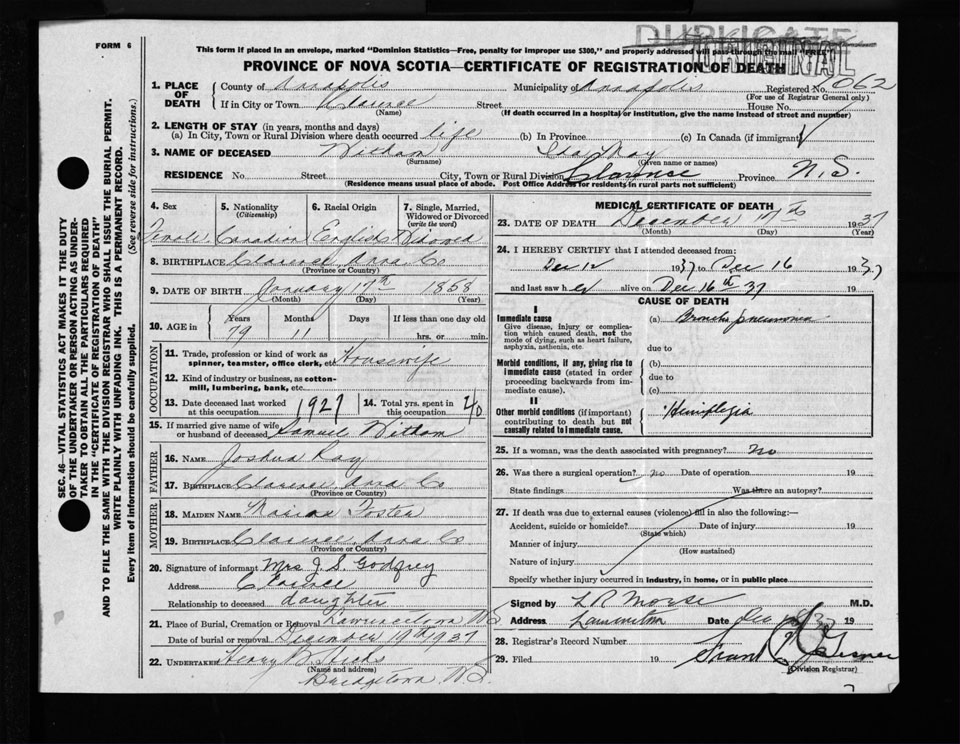 FORM 6
DUPLICATE
ORIGINAL
This form if placed in an envelope, marked "Dominion Statistics—Free, penalty for improper use $300," and properly addressed will pass through the mail "FREE"
PROVINCE OF NOVA SCOTIA—CERTIFICATE OF REGISTRATION OF DEATH
1. PLACE OF DEATH
County of Annapolis Municipality of Annapolis Registered No. 62
(For use of Registrar General only)
If in City or Town Clarence Street House No.
(Name) (If death occurred in a hospital or institution, give the name instead of street and number)
2. LENGTH OF STAY (in years, months and days)
(a) In City, Town or Rural Division where death occurred life (b) In Province (c) In Canada (if immigrant)
3. NAME OF DECEASED Witham May
(Surname) (Given name or names)
RESIDENCE No. Street City, Town or Rural Division Clarence Province N.S.
(Residence means usual place of abode. Post Office Address for residents in rural parts not sufficient)
4. Sex
Female
5. Nationality
(Citizenship)
Canadian
6. Racial Origin
English
7. Single, Married, Widowed or Divorced
(write the word)
Widowed
8. BIRTHPLACE Clarence Anna. Co
(Province or Country)
9. DATE OF BIRTH January 17th 1858
(Month) (Day) (Year)
10. AGE in Years Months Days If less than one day old
79 11 hrs. or min.
OCCUPATION
11. Trade, profession or kind of work as spinner, teamster, office clerk, etc. Housewife
12. Kind of industry or business, as cotton-mill, lumbering, bank, etc.
13. Date deceased last worked at this occupation 1927
14. Total yrs. spent in this occupation 40
15. If married give name of wife or husband of deceased Samuel Witham
FATHER
16. NAME Joshua Ray
17. BIRTHPLACE Clarence Anna Co
(Province or Country)
MOTHER
18. MAIDEN NAME Foster
19. BIRTHPLACE Clarence, Anna Co
(Province or Country)
20. Signature of informant Mrs J. S. Godfrey
Address Clarence
Relationship to deceased daughter
21. Place of Burial, Cremation or Removal Lawrencetown NS
Date of burial or removal December 19th 1937
22. UNDERTAKER Henry B. Hicks
(Name and address)
Bridgetown N.S.
MEDICAL CERTIFICATE OF DEATH
23. DATE OF DEATH December 17th 1937
(Month) (Day) (Year)
24. I HEREBY CERTIFY that I attended deceased from
Dec 12 1937 to Dec 16 1937
and last saw her alive on Dec 16th 37 19
CAUSE OF DEATH
I
Immediate cause
Give disease, injury or complication which caused death, not the mode of dying, such as heart failure, asphyxia, asthenia, etc.
(a) Broncho pneumonia
due to
Morbid conditions, if any, giving rise to immediate cause (stated in order proceeding backwards from immediate cause).
(b)
due to
(c)
II
Other morbid conditions (if important) contributing to death but not causally related to immediate cause.
Hemiplegia
25. If a woman, was the death associated with pregnancy? no
26. Was there a surgical operation? no Date of operation 19
State findings Was there an autopsy?
27. If death was due to external causes (violence) fill in also the following:—
Accident, suicide or homicide? Date of injury 19
(State which)
Manner of injury
(How sustained)
Nature of injury
Specify whether injury occurred in industry, in home, or in public place
Signed by L R Morse M.D.
Address Lawrencetown Dec 19
28. Registrar's Record Number
29. Filed 19
(Division Registrar)
SEC. 46—VITAL STATISTICS ACT MAKES IT THE DUTY
OF THE UNDERTAKER OR PERSON ACTING AS UNDER-
TAKER TO OBTAIN ALL THE PARTICULARS REQUIRED
IN THE "CERTIFICATE OF REGISTRATION OF DEATH"
AND TO FILE THE SAME WITH THE DIVISION REGISTRAR WHO SHALL ISSUE THE BURIAL PERMIT.
WRITE PLAINLY WITH UNFADING INK. THIS IS A PERMANENT RECORD.
Every item of information should be carefully supplied. (See reverse side for instructions.)